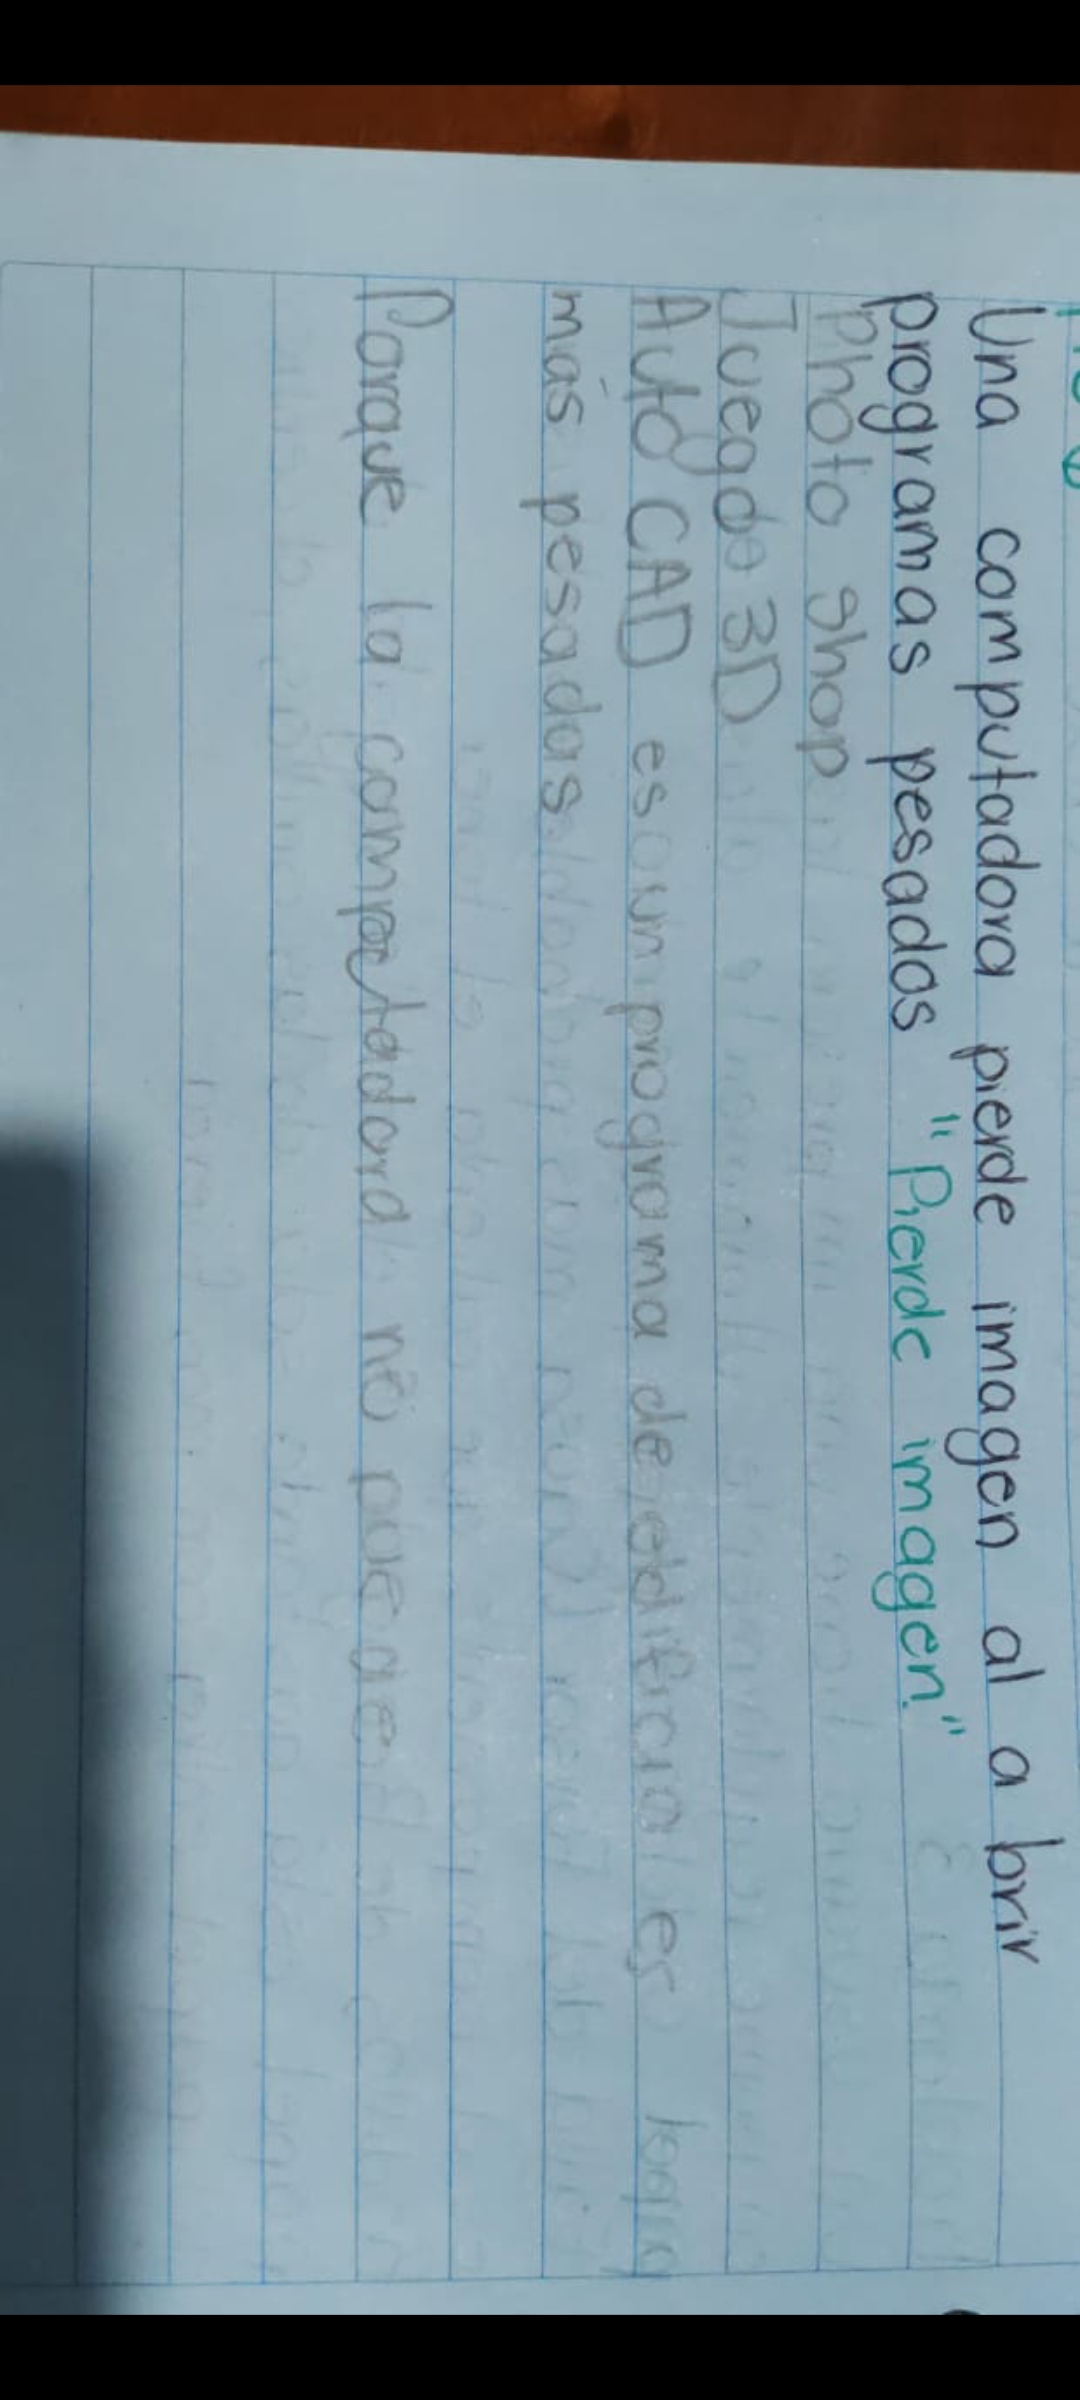 Una computadora pierde imagen al a brir
programas pesados "Pierde imagen"
Photo shop
Juegdo 3D
Auto CAD es un programa de edificial es
más pesadas
Porque la computadora no puede